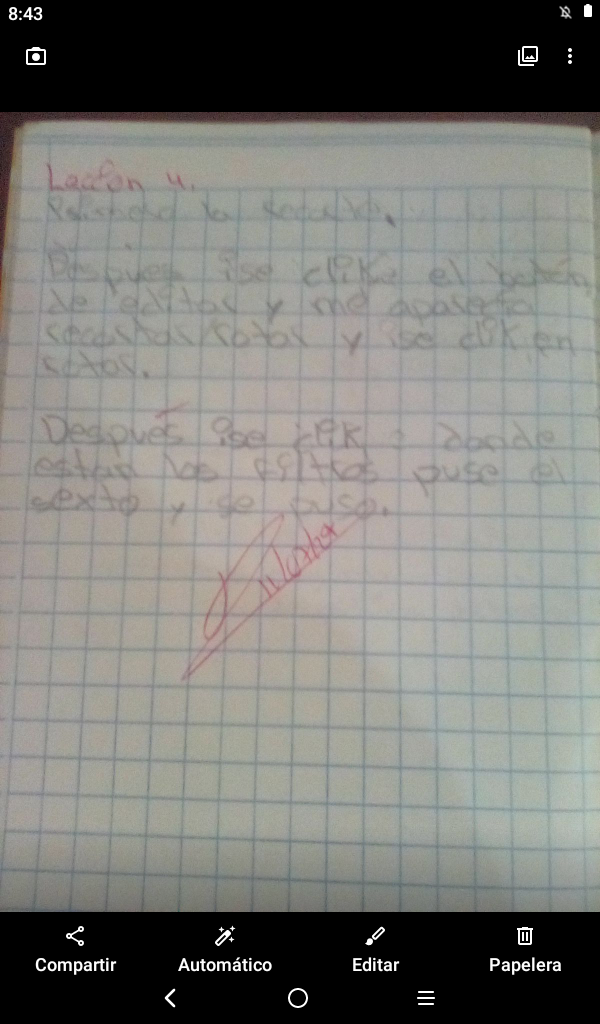 8:43
Lección 4.
Primero la
Después ise clik el botón
de editar y me aparecio
recortar rotar y ise clik en
rotar.
Después ise clik : donde
estan los filtros puse el
sexto y se puso.
Compartir
Automático
Editar
Papelera